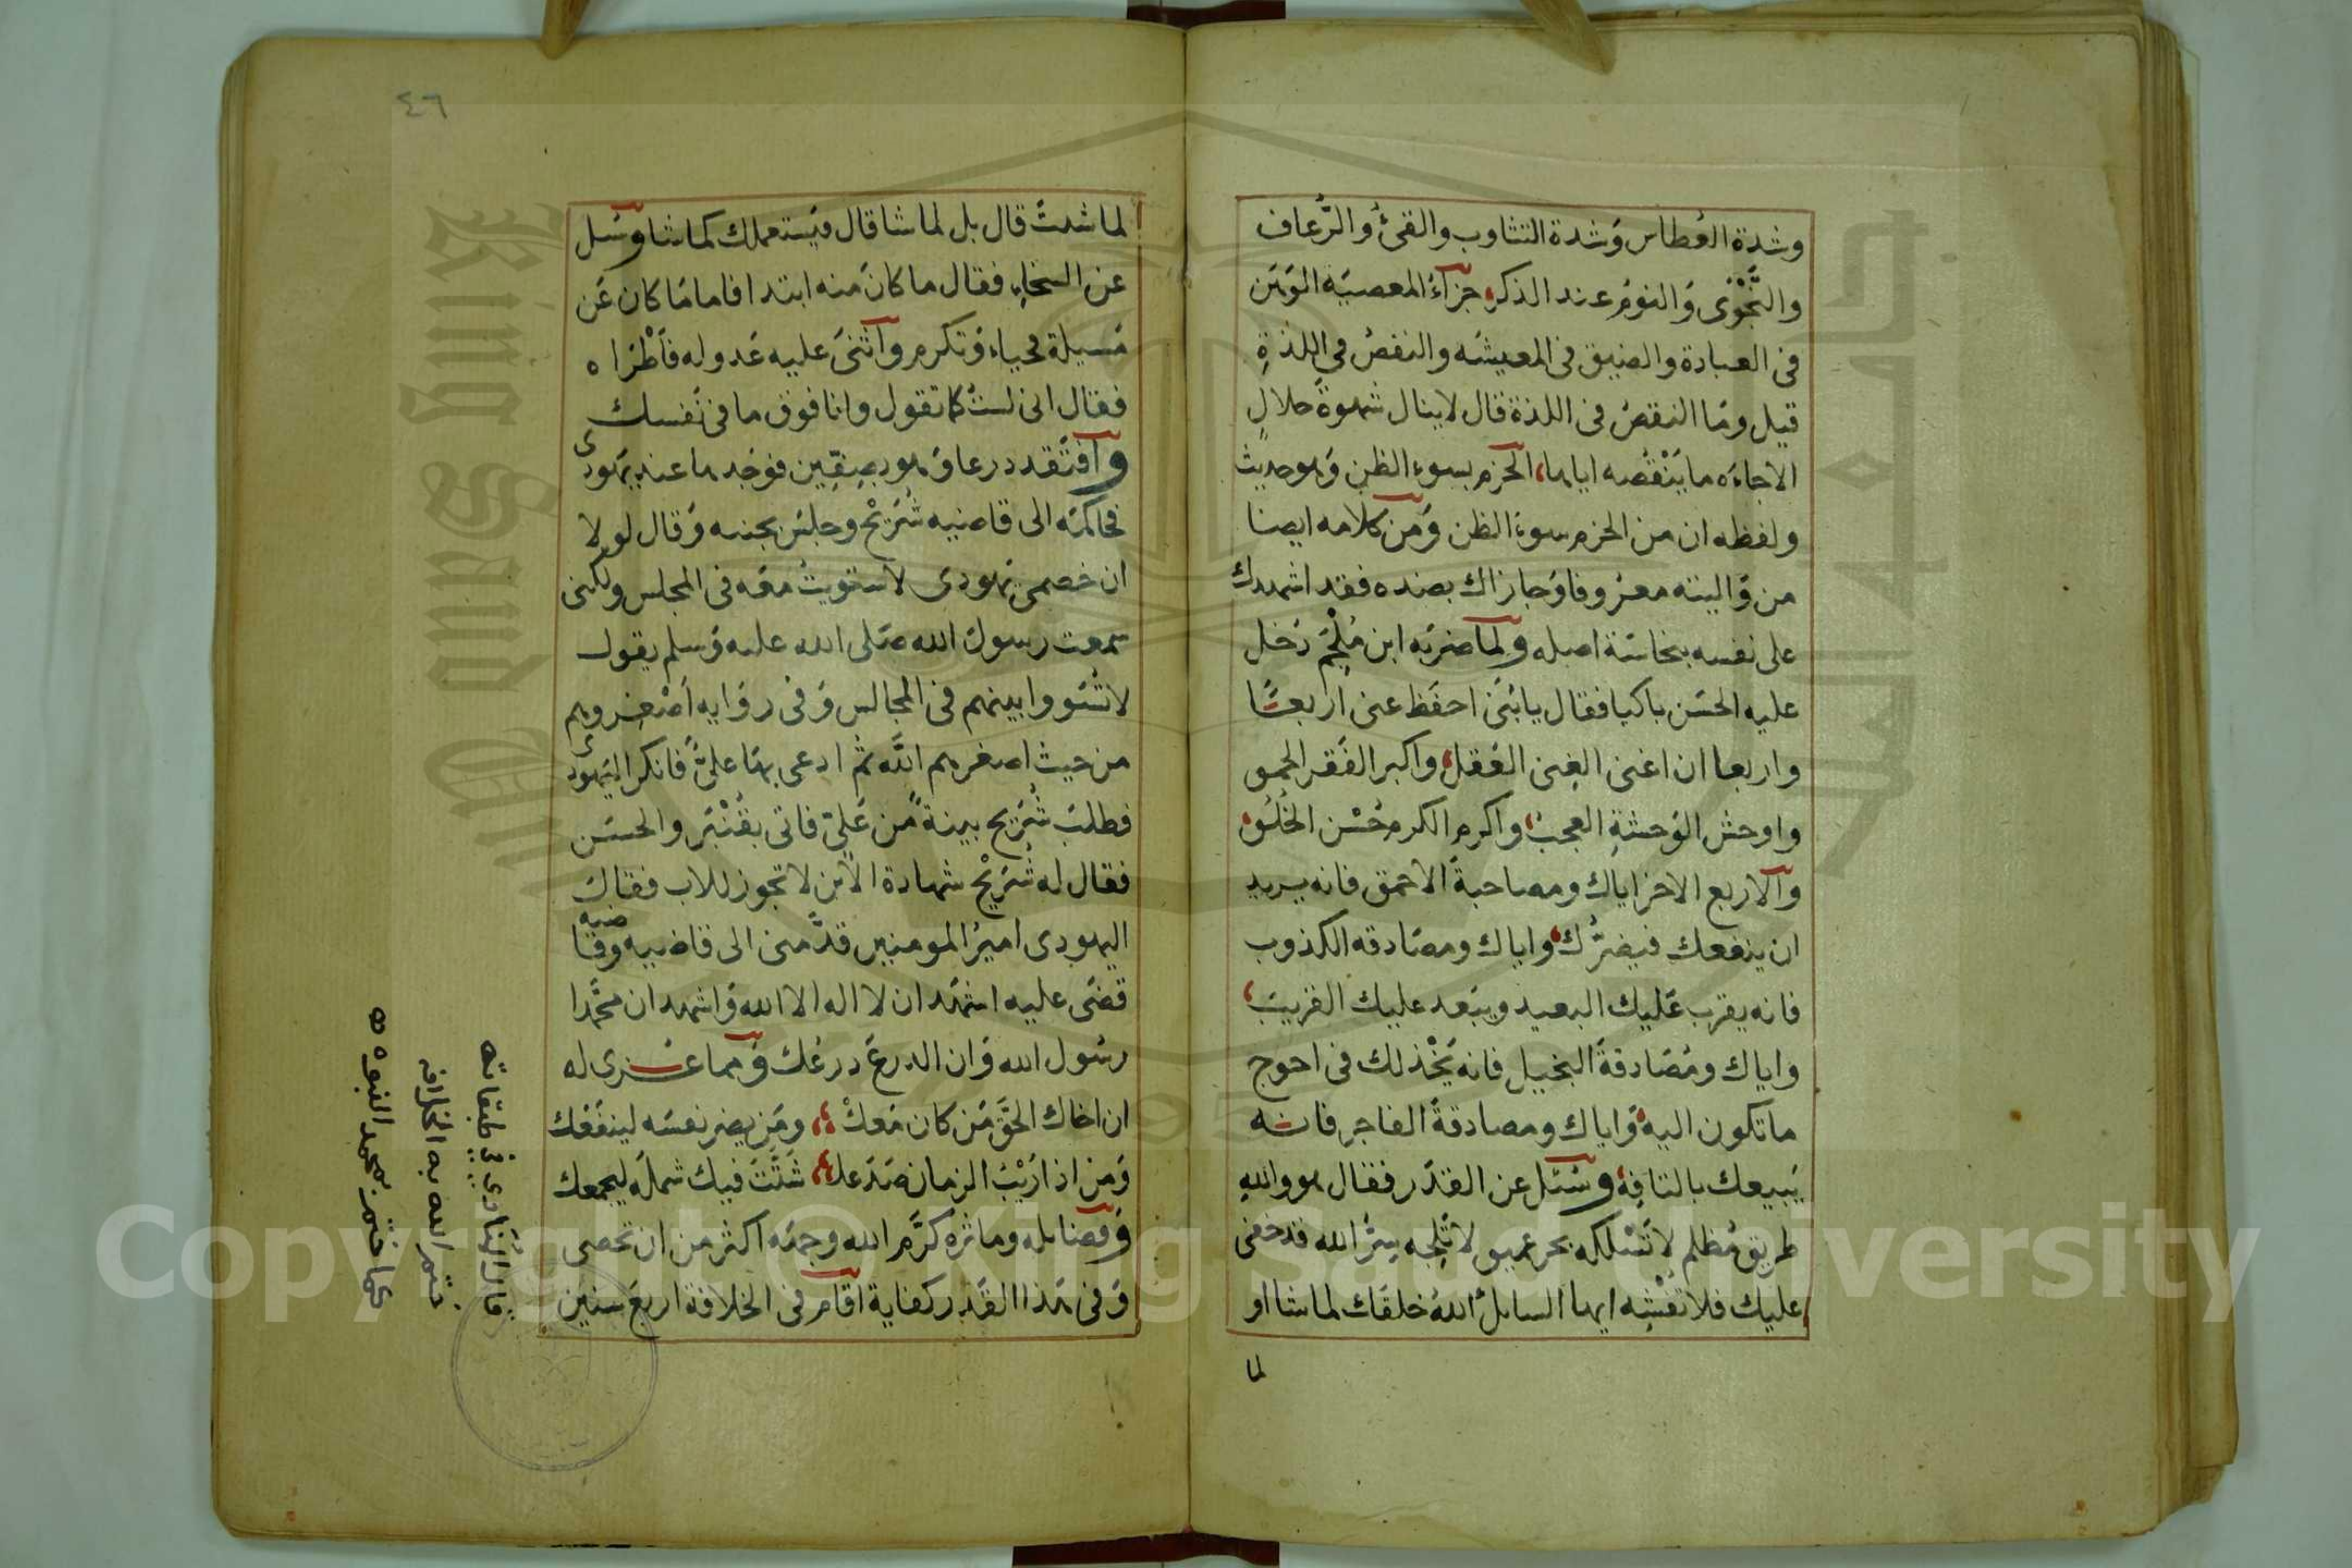 وشدة العُطاس وَشدة التثاوب والقئُ والرُّعاف
والنَّجْوَى وَالنوم عند الذكر، جزآءُ المعصيَه الوَهَن
فى العبادة والضيق فى المعيشَه والنقصُ فى اللذةِ
قيل ومَا النقصُ فى اللذة قال لاينال شهوةً حلالٍ
الاجاءَه ما يَنْقُصه اياها، الحزم بسوء الظن وَهو حديث
ولفظه ان من الحزم سوءَ الظن وَمن كلامه ايضا
من وَاليته معرُوفا وَجازاك بضده فقد اشهدك
على نفسه بنجاسَة اصله ولما ضربَه ابن مُلْجَم دَخل
عليه الحسَن باكيا فقال يا بُنَى احفَظ عنى اربعًا
واربعا ان اغنى الغِنى العَقل، واكبر الفَقر الحمق
واوحش الوَحشةِ العجبُ، واكرم الكرم حُسْن الخُلُق،
وآلاربع الاخر اياك ومصاحبةَ الاحمق فانه يريد
ان ينفعك فيضرُّك، واياك ومصَادقه الكذوب
فانه يقرب عَليك البعيد ويبَعد عليك القريبَ،
واياك ومُصَادقةَ البخيل فانه يَخْذلك فى احوج
ما تكون اليه، وَاياك ومصادقةَ الفاجر فانه
يَبيعك بالتافِهِ، وسُئل عن القدَر فقال هو واللهِ
طريق مُظلم لا تَسْلكه بحر عميق لا تَلِجه سِرُّ الله قد خفى
عليك فلا تُفْشِه ايها السايلُ اللهُ خلقَك لما شا او
لما
٤٦
لما شئتَ قال بل لما شا قال فيَستعملك كما شا وسُئل
عن السخاء فقال ما كان منه ابتدا فاما مَا كان عَن
مَسيلة فحياء وَتكرم وآثنىَ عليه عَدو له فَأطْرَاه
فقال انى لستُ كما تقول وانا فوق ما فى نَفسك
وآفتقد درعا وَهو بصِفِّين فوَجدها عند يَهودى
فحاكمَه الى قاضيه شُرَيْح وجلسَ بجنبه وَقال لولا
ان خصمى يَهودى لاستويتُ معَه فى المجلس ولكنى
سمعت رسولَ الله صَلى الله عليه وَسلم يقول
لا تُسَووا بينهم فى المجالس وَفى روَايه اَصْغروهم
من حيث اصغرهم اللَّه ثم ادعى بهَا علىٌّ فانكر اليَهودى
فطلبَ شُرَيح بينةً من عَلىّ فاتى بقَنْبَر والحسَن
فقال له شُرَيْح شهادة الاُبن لا تجوز للاب فقال
اليهودى اميرُ المومنين قدَّمنى الى قاضيه وقاضيه
قضَى عليه اشهَد ان لا اله الا الله وَاشهد ان محَّمدا
رسُول الله وَان الدرعَ درعُك وَمما عُزى له
ان اخاك الحقَّ مَن كان مَعكْ،، ومَن يضر نفسَه لينفَعك
وَمن اذا رَيْبُ الزمان صَدَعك، شَتَّتَ فيك شملَه ليجمعك
وَفضايله وماثرَه كرَّم الله وجهَه اكثر من ان تحصى
وَفى هَذا القَدر كفاية آقامَ فى الخلافة اربعَ سنين
قال المناوى فى طبقاته
ختم الله به الخلافه
كما ختم بمحمد النبوه ه